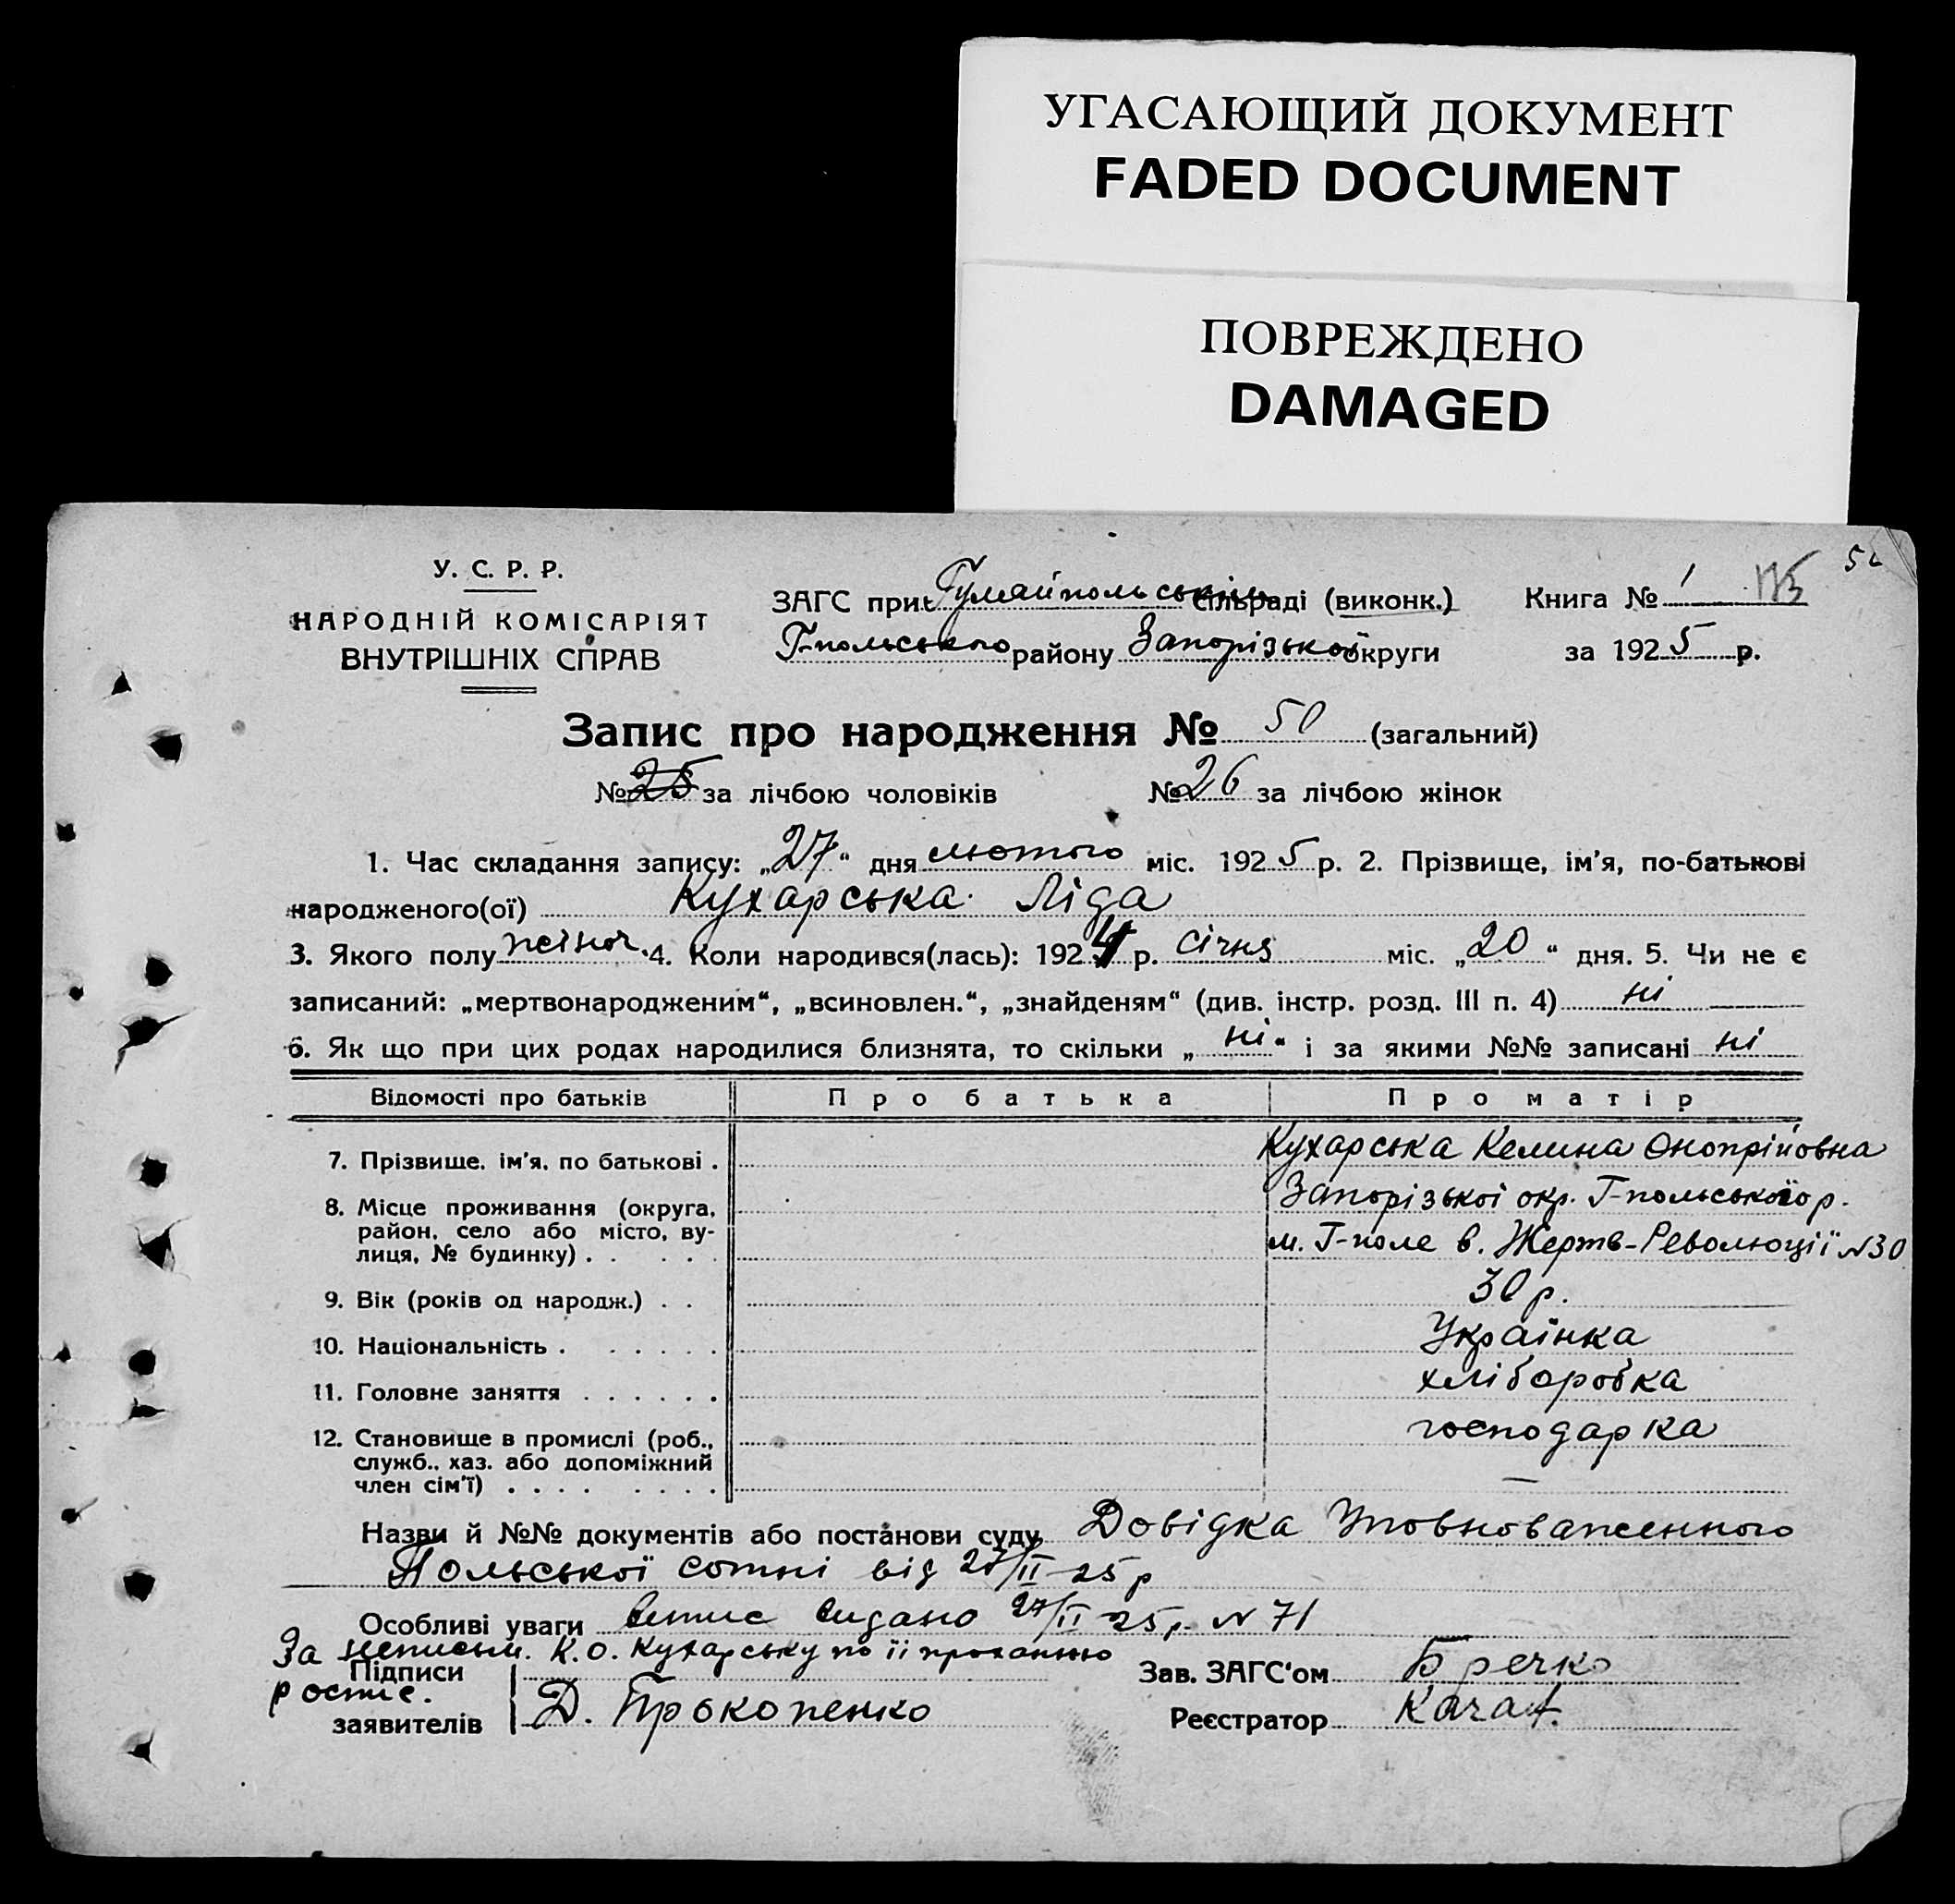 УГАСАЮЩИЙ ДОКУМЕНТ
FADED DOCUMENT
ПОВРЕЖДЕНО
DAMAGED
У. С. Р. Р.
НАРОДНІЙ КОМІСАРІЯТ
ВНУТРІШНІХ СПРАВ
ЗАГС при Гуляйпольській сільраді (виконк.)
Г-польського району Запорізької округи
Книга № 1 175
за 1925 р.
Запис про народження № 50 (загальний)
№ 25 за лічбою чоловіків № 26 за лічбою жінок
1. Час складання запису: „27“ дня лютого міс. 1925 р. 2. Прізвище, ім'я, по-батькові
народженого(ої) Кухарська Ліда
3. Якого полу жіноч. 4. Коли народився(лась): 1924 р. січня міс. „20“ дня. 5. Чи не є
записаний: „мертвонародженим“, „всиновлен.“, „знайденям“ (див. інстр. розд. III п. 4) ні
6. Як що при цих родах народилися близнята, то скільки „ні“ і за якими №№ записані ні
Відомості про батьків Про батька Про матір
7. Прізвище, ім'я, по батькові . Кухарська Келина Онопрійовна
8. Місце проживання (округа, Запорізької окр. Г-польського р.
район, село або місто, ву-
лиця, № будинку) . . . . м. Г-поле в. Жертв-Революції N30
9. Вік (років од народж.) . . 30 р.
10. Національність . . . . . . Українка
11. Головне заняття . . . . . . хліборобка
12. Становище в промислі (роб., господарка
служб., хаз. або допоміжний
член сім'ї) . . . . . . . . —
Назви й №№ документів або постанови суду Довідка Уповноваженного
Польської сотні від 27/II-25 р
Особливі уваги випис видано 27/II-25 р. N 71
За неписьм. К.О. Кухарську по її проханню
Підписи
розпис.
заявителів Д. Прокопенко
Зав. ЗАГС'ом Бречко
Реєстратор